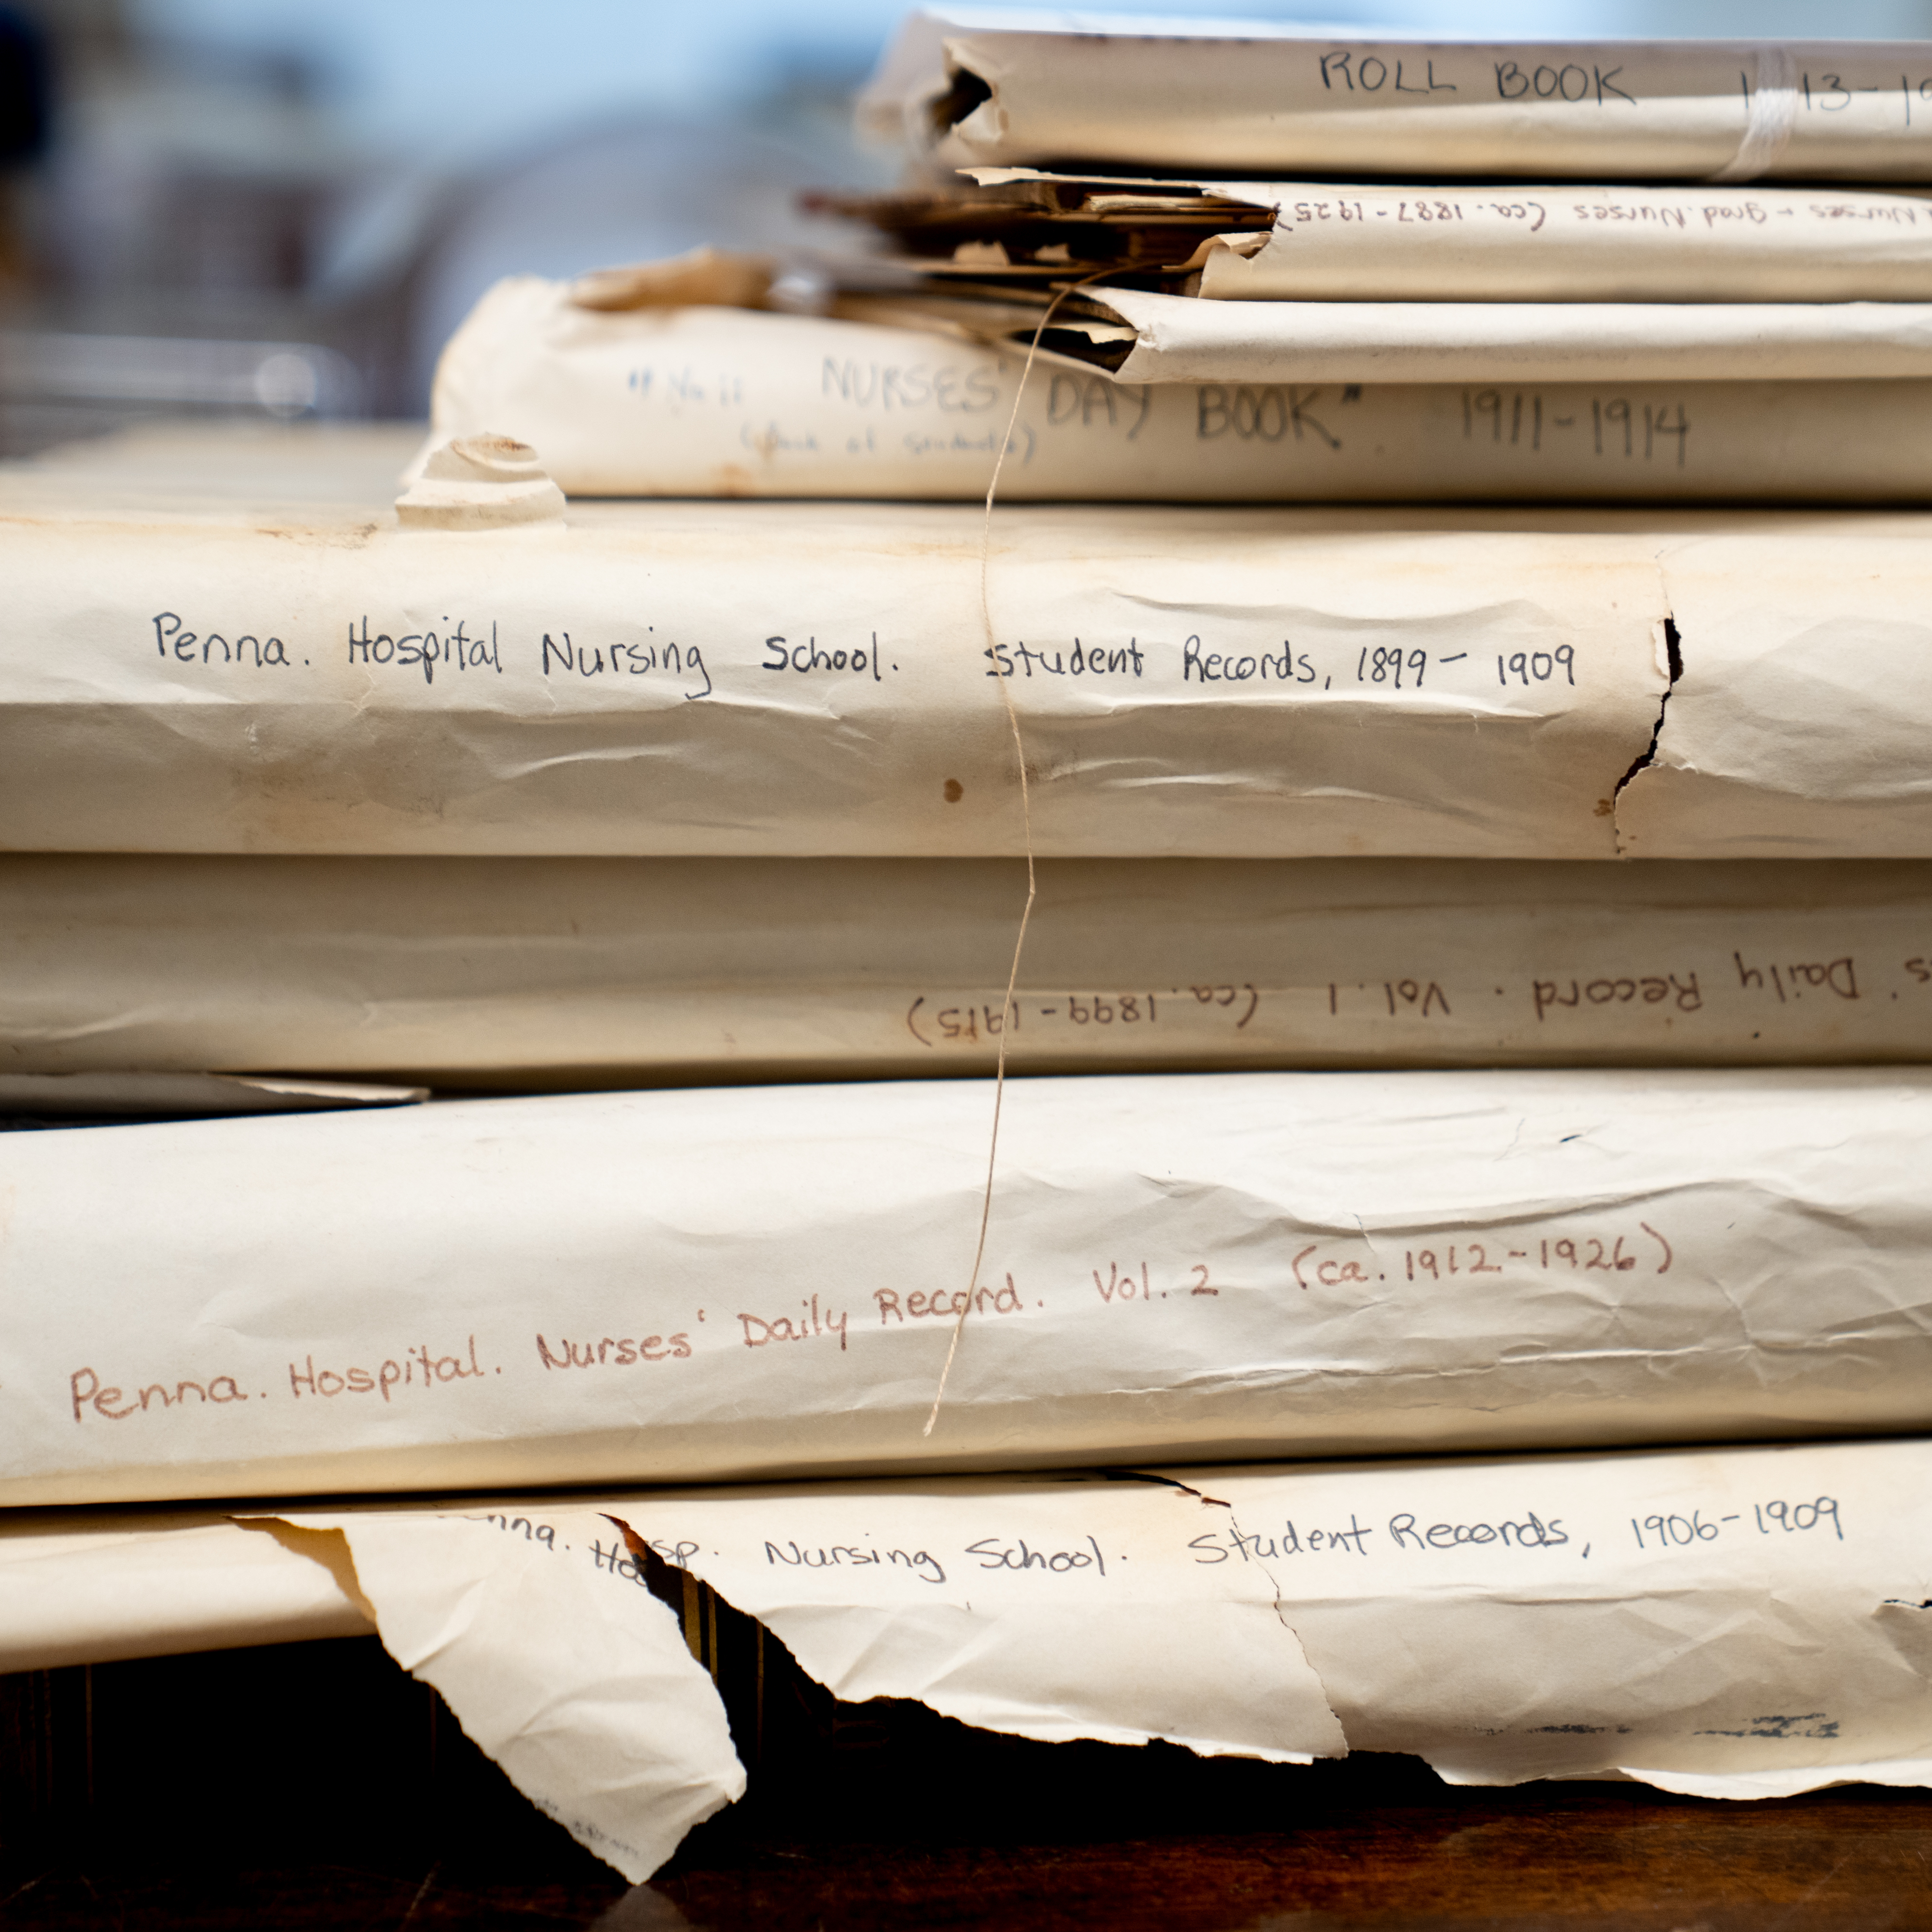 ROLL BOOK 1 13-19
Nurses + grad. Nurses (ca. 1887-1925)
" No. 11 NURSES' DAY BOOK". 1911-1914
Penna. Hospital Nursing School. Student Records, 1899-1909
s' Daily Record. Vol. 1 (ca. 1899-1915)
Penna. Hospital. Nurses' Daily Record. Vol. 2 (ca. 1912-1926)
nna. Hosp. Nursing School. Student Records, 1906-1909